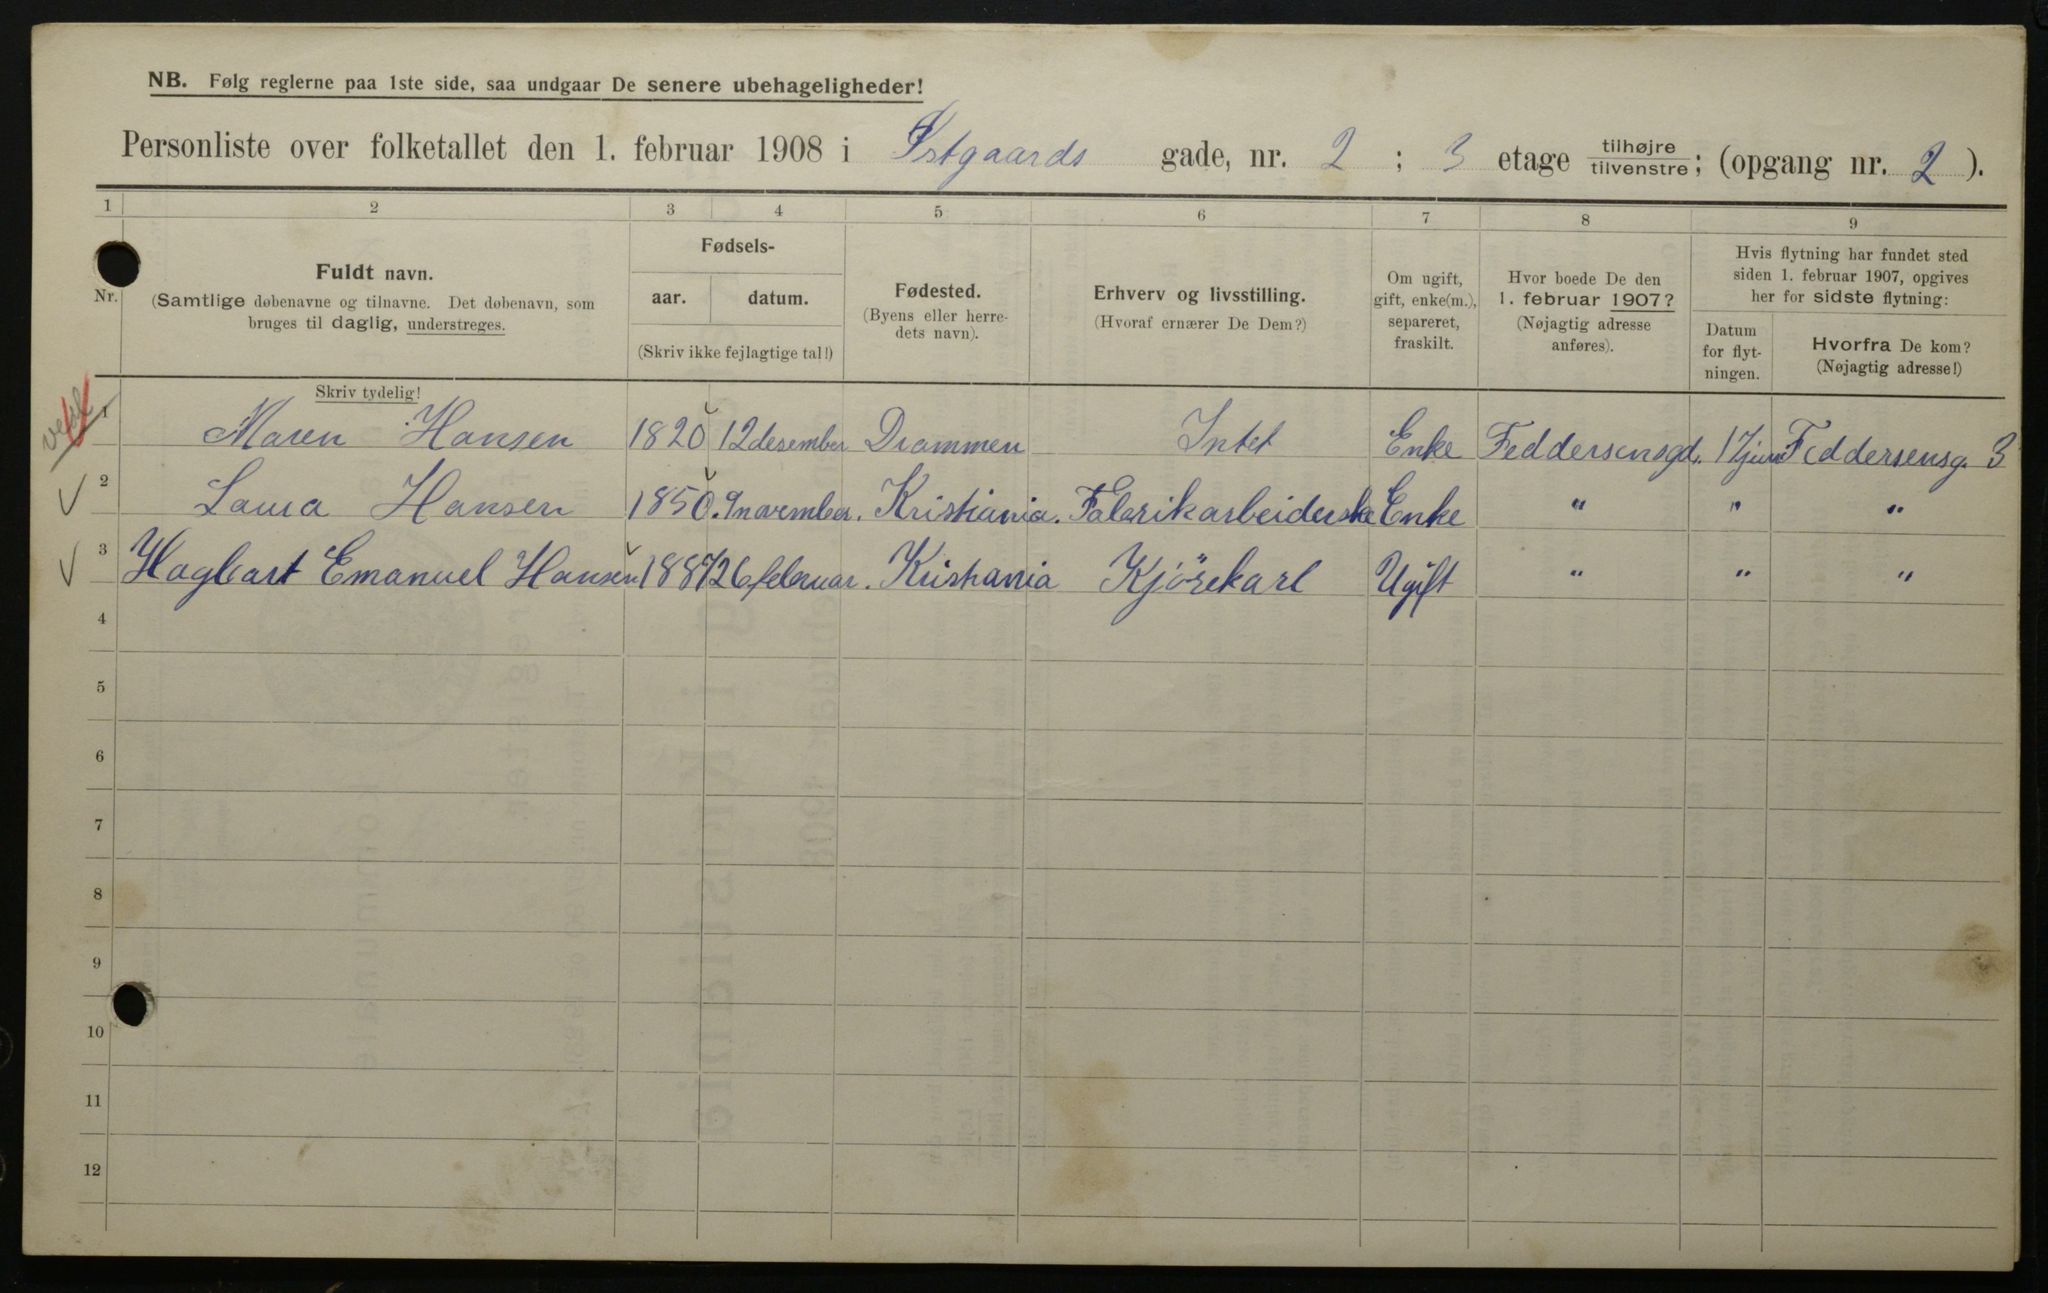 NB. Følg reglerne paa 1ste side, saa undgaar De senere ubehageligheder!
Personliste over folketallet den 1. februar 1908 i Østgaards gade, nr. 2 ; 3 etage tilhøjre/tilvenstre; (opgang nr. 2 ).
1 2 3 4 5 6 7 8 9
Nr.
Fuldt navn.
(Samtlige døbenavne og tilnavne. Det døbenavn, som
bruges til daglig, understreges.
Skriv tydelig!
Fødsels-
aar. datum.
(Skriv ikke fejlagtige tal!)
Fødested.
(Byens eller herre-
dets navn).
Erhverv og livsstilling.
(Hvoraf ernærer De Dem?)
Om ugift,
gift, enke(m.),
separeret,
fraskilt.
Hvor boede De den
1. februar 1907?
(Nøjagtig adresse
anføres).
Hvis flytning har fundet sted
siden 1. februar 1907, opgives
her for sidste flytning:
Datum
for flyt-
ningen.
Hvorfra De kom?
(Nøjagtig adresse!)
1 Maren Hansen 1820 12 desember Drammen Intet Enke Feddersensgd. 17 juni Feddersensg. 3
2 Laura Hansen 1850. 9 november. Kristiania. Fabrikarbeiderske Enke " " "
3 Hagbart Emanuel Hansen 1887 26 februar. Kristiania Kjörekarl Ugift " " "
4
5
6
7
8
9
10
11
12